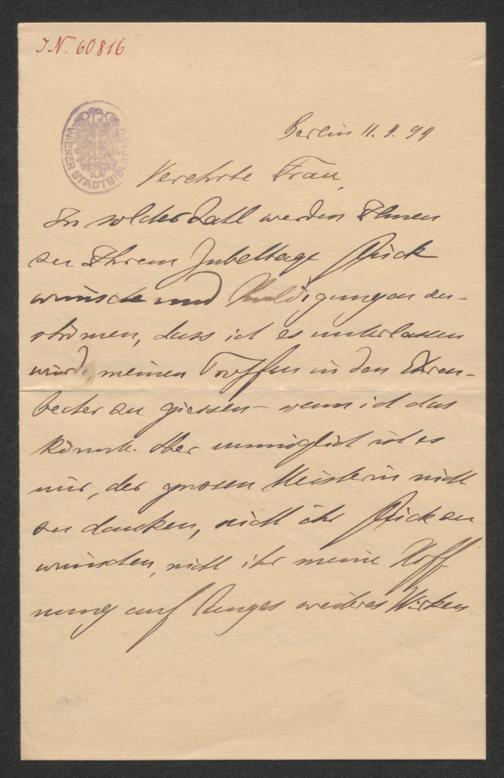 I.N. 60816
WIENER STADTBIBLIOTHEK
Berlin 11. 9. 99
Verehrte Frau,
In solcher Zahl werden Ihnen
zu Ihrem Jubeltage Glück
wünsche und Huldigungen zu-
strömen, dass ich es unterlassen
würde, meinen Tropfen in den Ehren-
becher zu giessen – wenn ich das
könnte. Aber unmöglich ist es
mir, der grossen Meisterin nicht
zu danken, nicht ihr Glück zu
wünschen, nicht ihr meine Hoff
nung auf langes weiteres Wirken